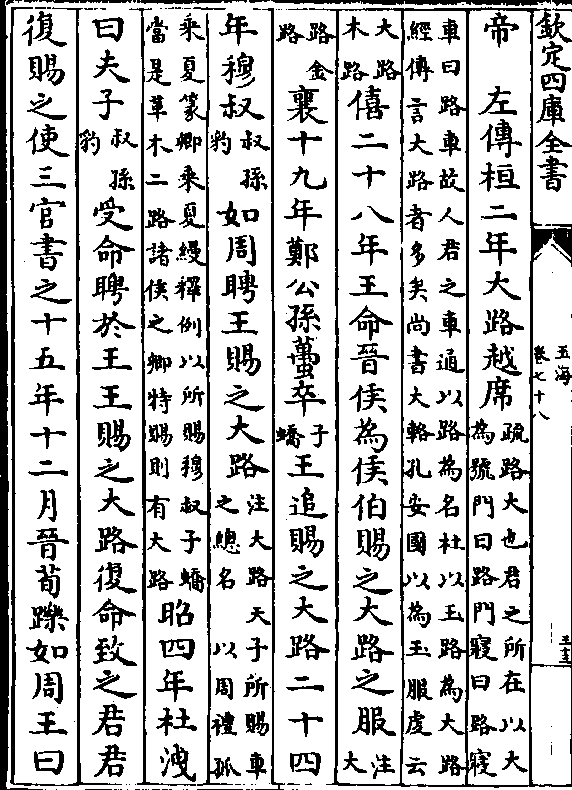 欽定四庫全書
玉海
卷七十八
帝　左傳桓二年大路越席
疏路大也君之所在以大
為號門曰路門寢曰路寢
車曰路車故人君之車通以路為名杜以玉路為大路
經傳言大路者多矣尚書大輅孔安國以為玉服虔云
大路
木路
僖二十八年王命晉侯為侯伯賜之大路之服
注
大
路金
路
襄十九年鄭公孫蠆卒
子
蟜
王追賜之大路二十四
年穆叔
叔孫
豹
如周聘王賜之大路
注大路天子所賜車
之總名　以周禮孤
乘夏篆卿乘夏縵釋例以所賜穆叔子蟜
當是革木二路諸侯之卿特賜則有大路
昭四年杜洩
曰夫子
叔孫
豹
受命聘於王王賜之大路復命致之君君
復賜之使三官書之十五年十二月晉荀躒如周王曰